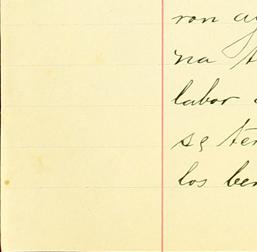 ron
na
labor
se ter
los ber